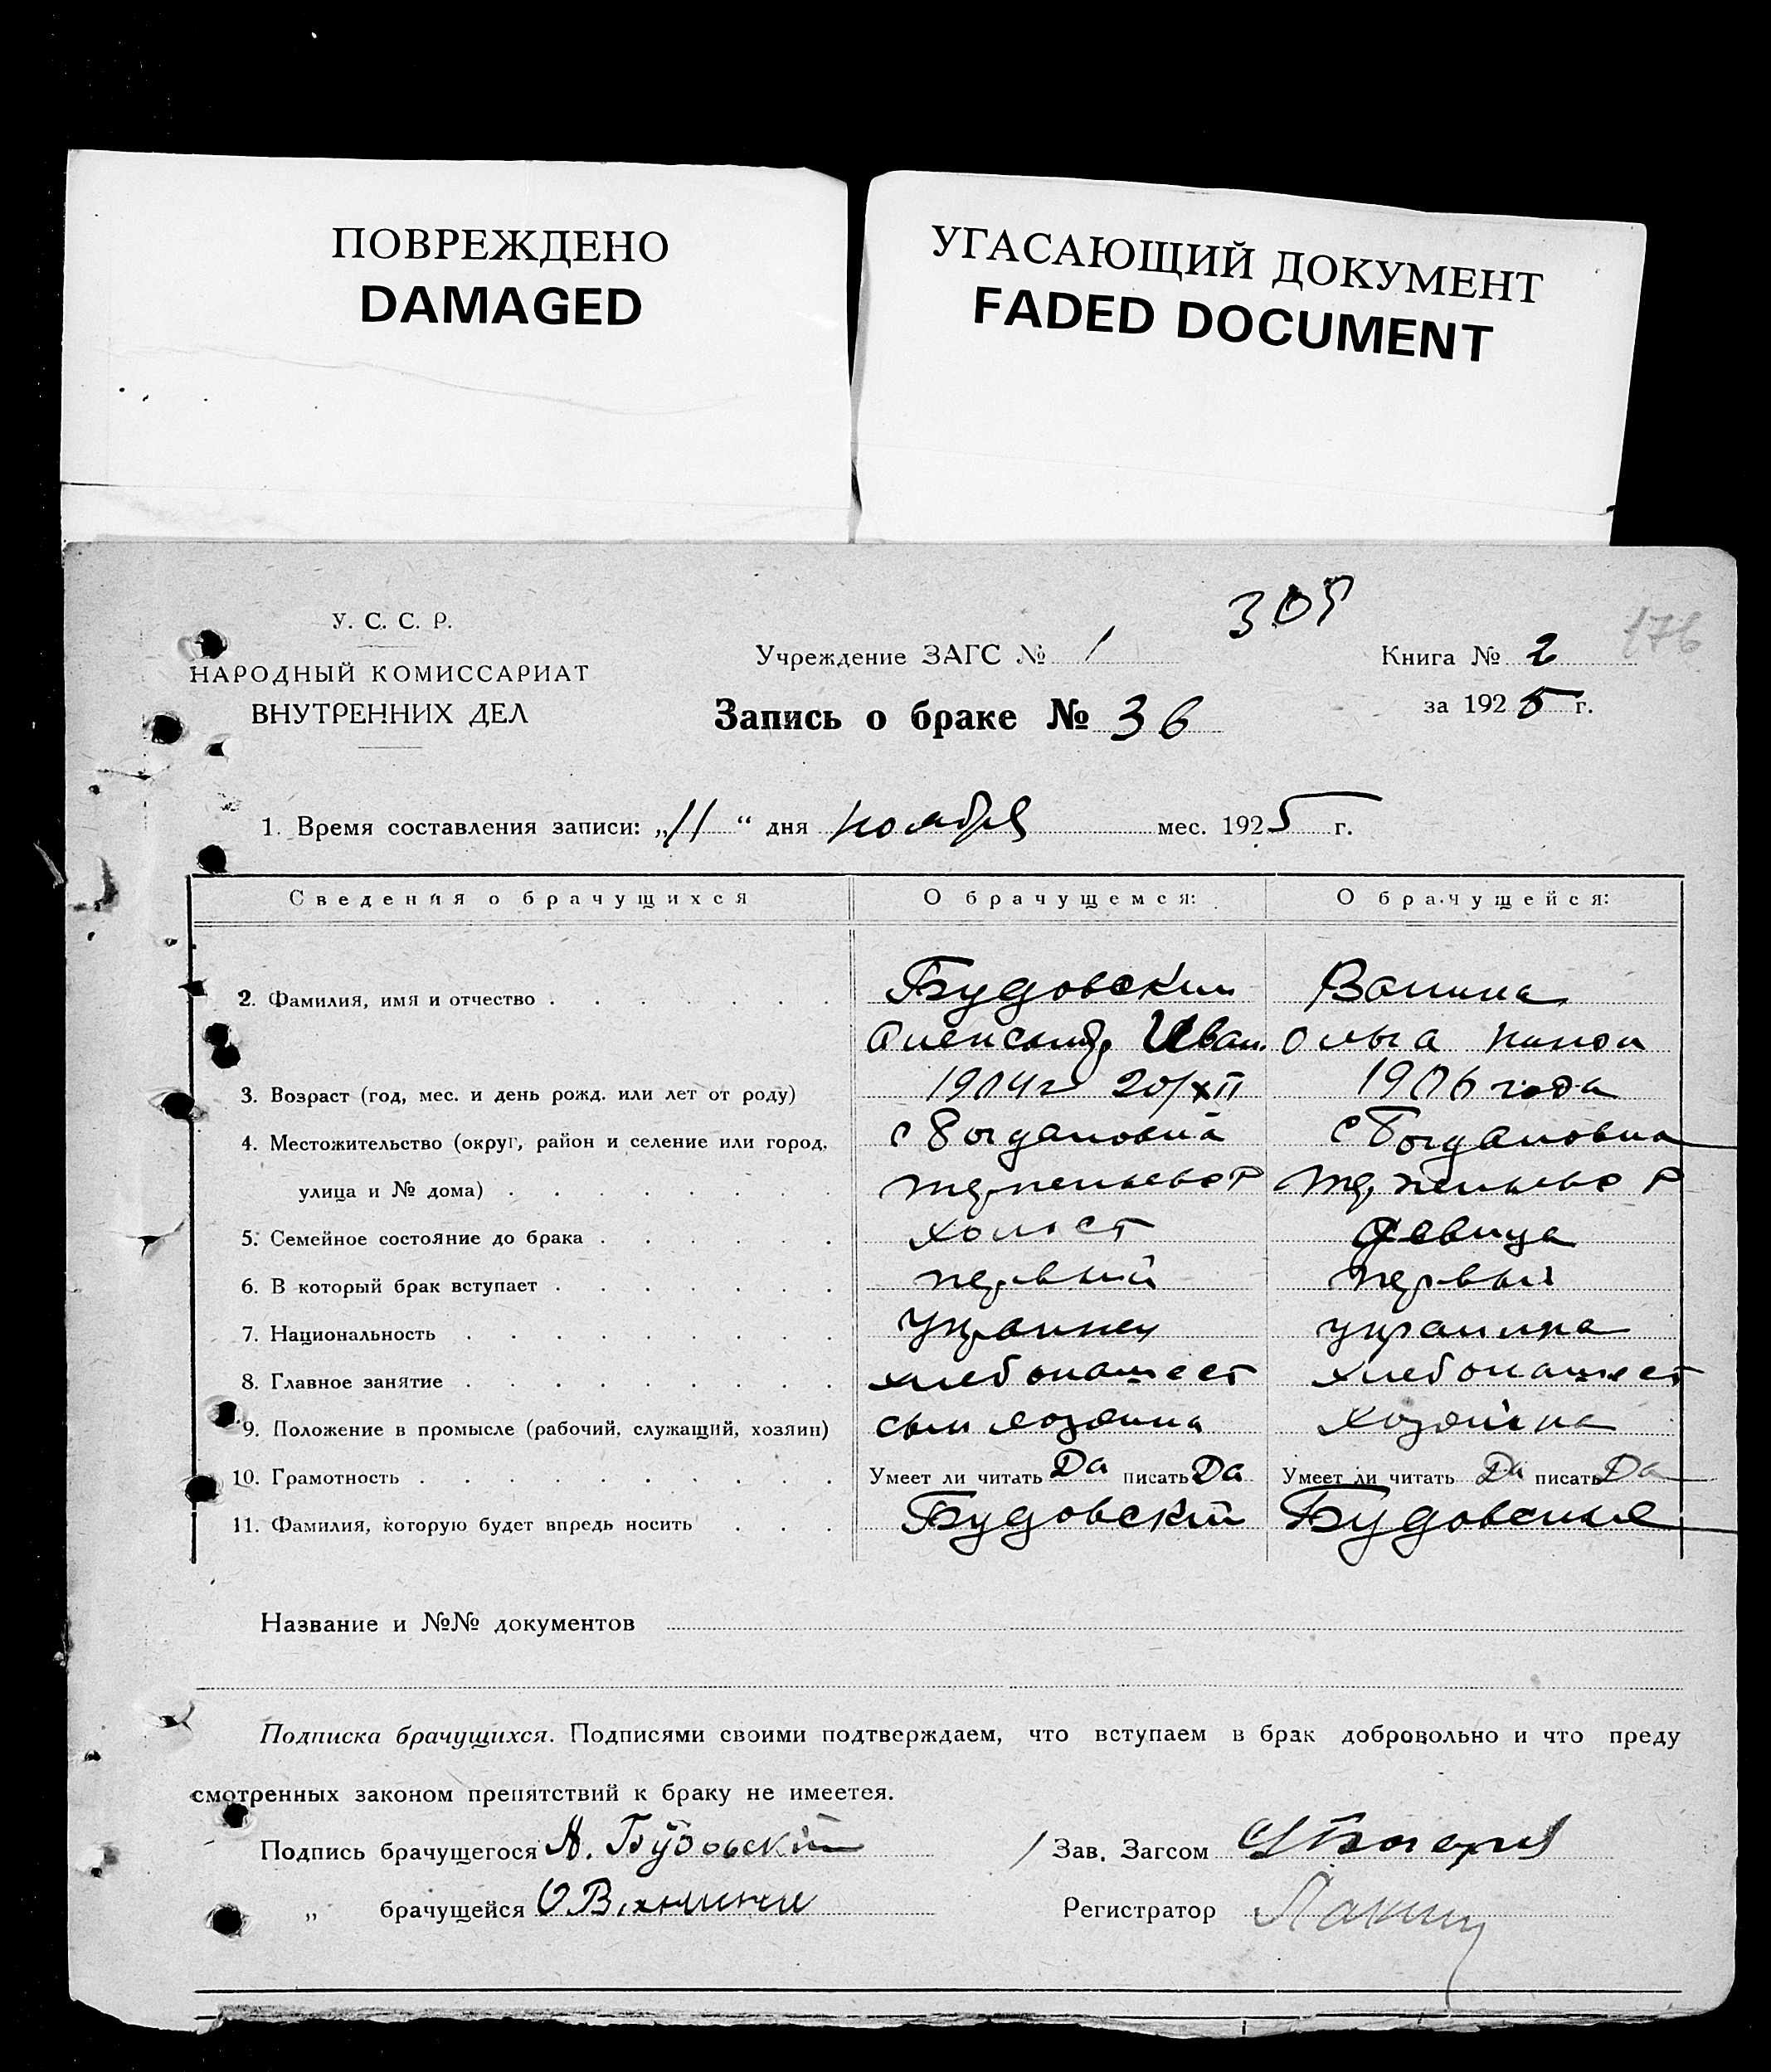 ПОВРЕЖДЕНО
DAMAGED
УГАСАЮЩИЙ ДОКУМЕНТ
FADED DOCUMENT
305
176
У. С. С. Р.
НАРОДНЫЙ КОМИССАРИАТ
ВНУТРЕННИХ ДЕЛ
Учреждение ЗАГС № 1
Книга № 2
за 1925 г.
Запись о браке № 36
1. Время составления записи: „11“ дня ноября мес. 1925 г.
Сведения о брачущихся О брачущемся: О брачущейся:
2. Фамилия, имя и отчество Будовский Ванина
Александр Иван. Ольга
3. Возраст (год, мес. и день рожд. или лет от роду) 1904 г 20/XII 1906 года
4. Местожительство (округ, район и селение или город, с Богдановка с Богдановка
улица и № дома)
5. Семейное состояние до брака холост девица
6. В который брак вступает первый первый
7. Национальность украинец украинка
8. Главное занятие хлебопашест хлебопашест
9. Положение в промысле (рабочий, служащий, хозяин) сын хозяина хозяйка
10. Грамотность Умеет ли читать Да писать Да Умеет ли читать Да писать Да
11. Фамилия, которую будет впредь носить Будовский Будовская
Название и №№ документов
Подписка брачущихся. Подписями своими подтверждаем, что вступаем в брак добровольно и что преду
смотренных законом препятствий к браку не имеется.
Подпись брачущегося А. Будовский Зав. Загсом
„ брачущейся О Ванина Регистратор